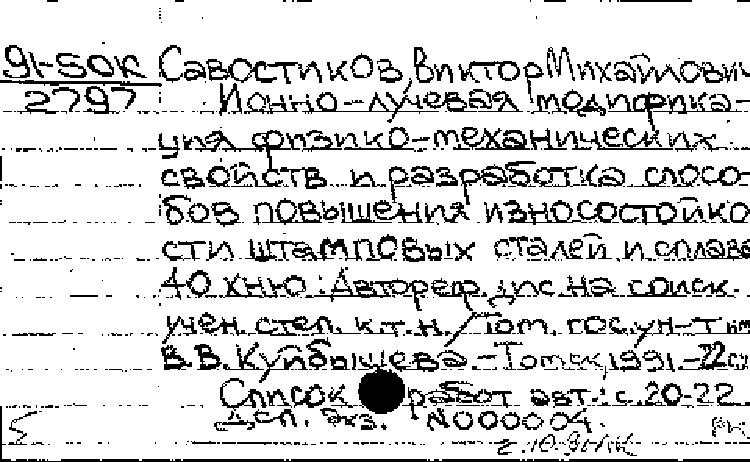 91-50К Савостиков, Виктор Михайлович
2797 Ионно-лучевая модифика-
ция физико-механических
свойств и разработка спосо-
бов повышения износостойко
сти штамповых сталей и сплава
40 ХНЮ: Автореф. дис. на соиск.
учен. степ. к.т.н. / Том. гос. ун-т им
В.В. Куйбышева. - Томск, 1991. - 22 с
Список работ авт.: с. 20-22.
Дсп. Экз. N000004.